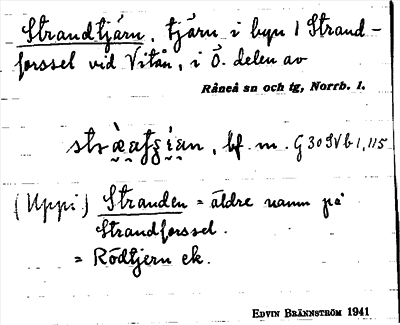 Strandtjärn, tjärn i byn 1 Strand-
forssel vid Vitån, i Ö. delen av
Råneå sn och tg, Norrb. l.
bf. m. G 30 SV b 1,115
(Uppi.) Stranden = äldre namn på
Strandforssel.
= Rödtjern ek.
EDVIN BRÄNNSTRÖM 1941